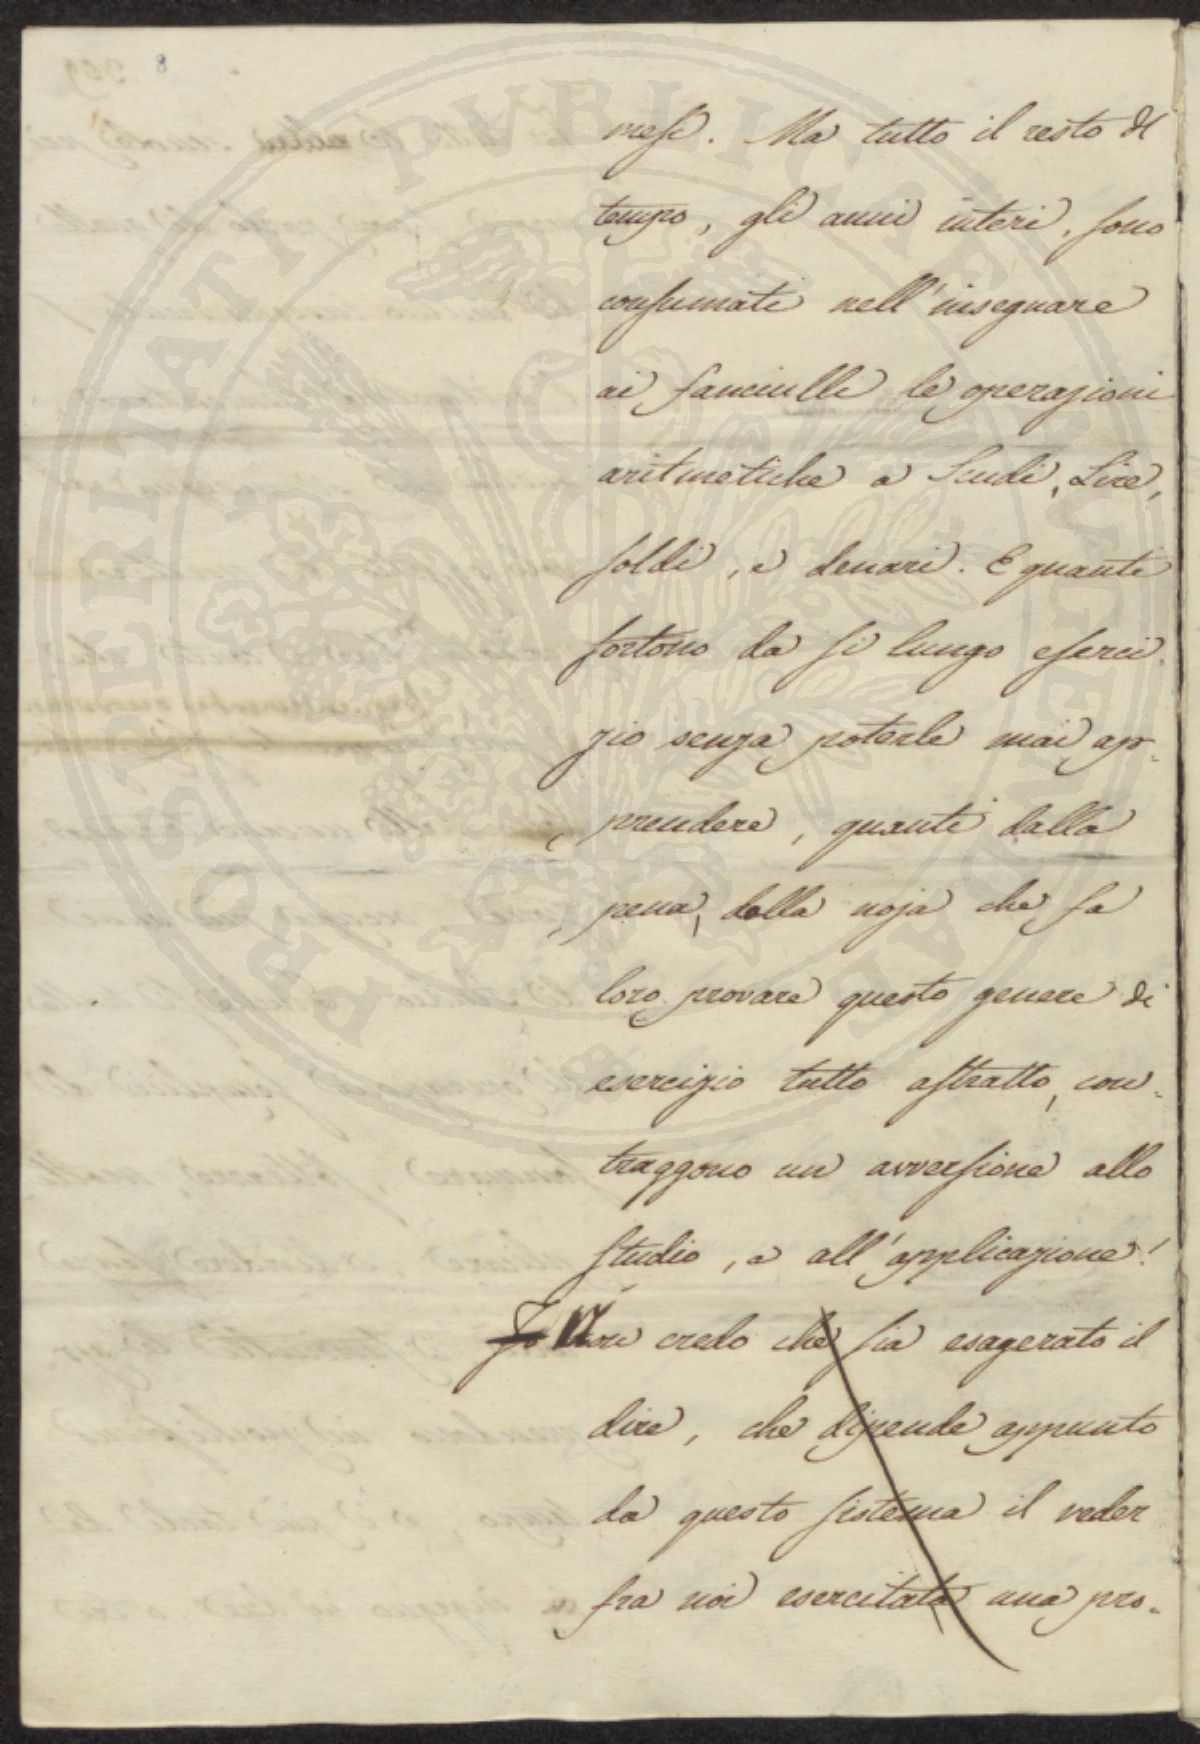 8
mesi. Ma tutto il resto del
tempo, gli anni interi, sono
consumati nell'insegnare
ai fanciulli le operazioni
aritmetiche a Scudi, Lire,
soldi, e denari. E quanti
sortono da si lungo eserci-
zio senza poterle mai ap-
prendere, quanti dalla
pena, dalla noja che fa
loro provare questo genere di
esercizio tutto astratto, con-
traggono un avversione allo
studio, e all'applicazione!
Io Non credo che sia esagerato il
dire, che dipende appunto
da questo sistema il veder
fra noi esercitata una pro-
POSTERITATI PVBLICAE